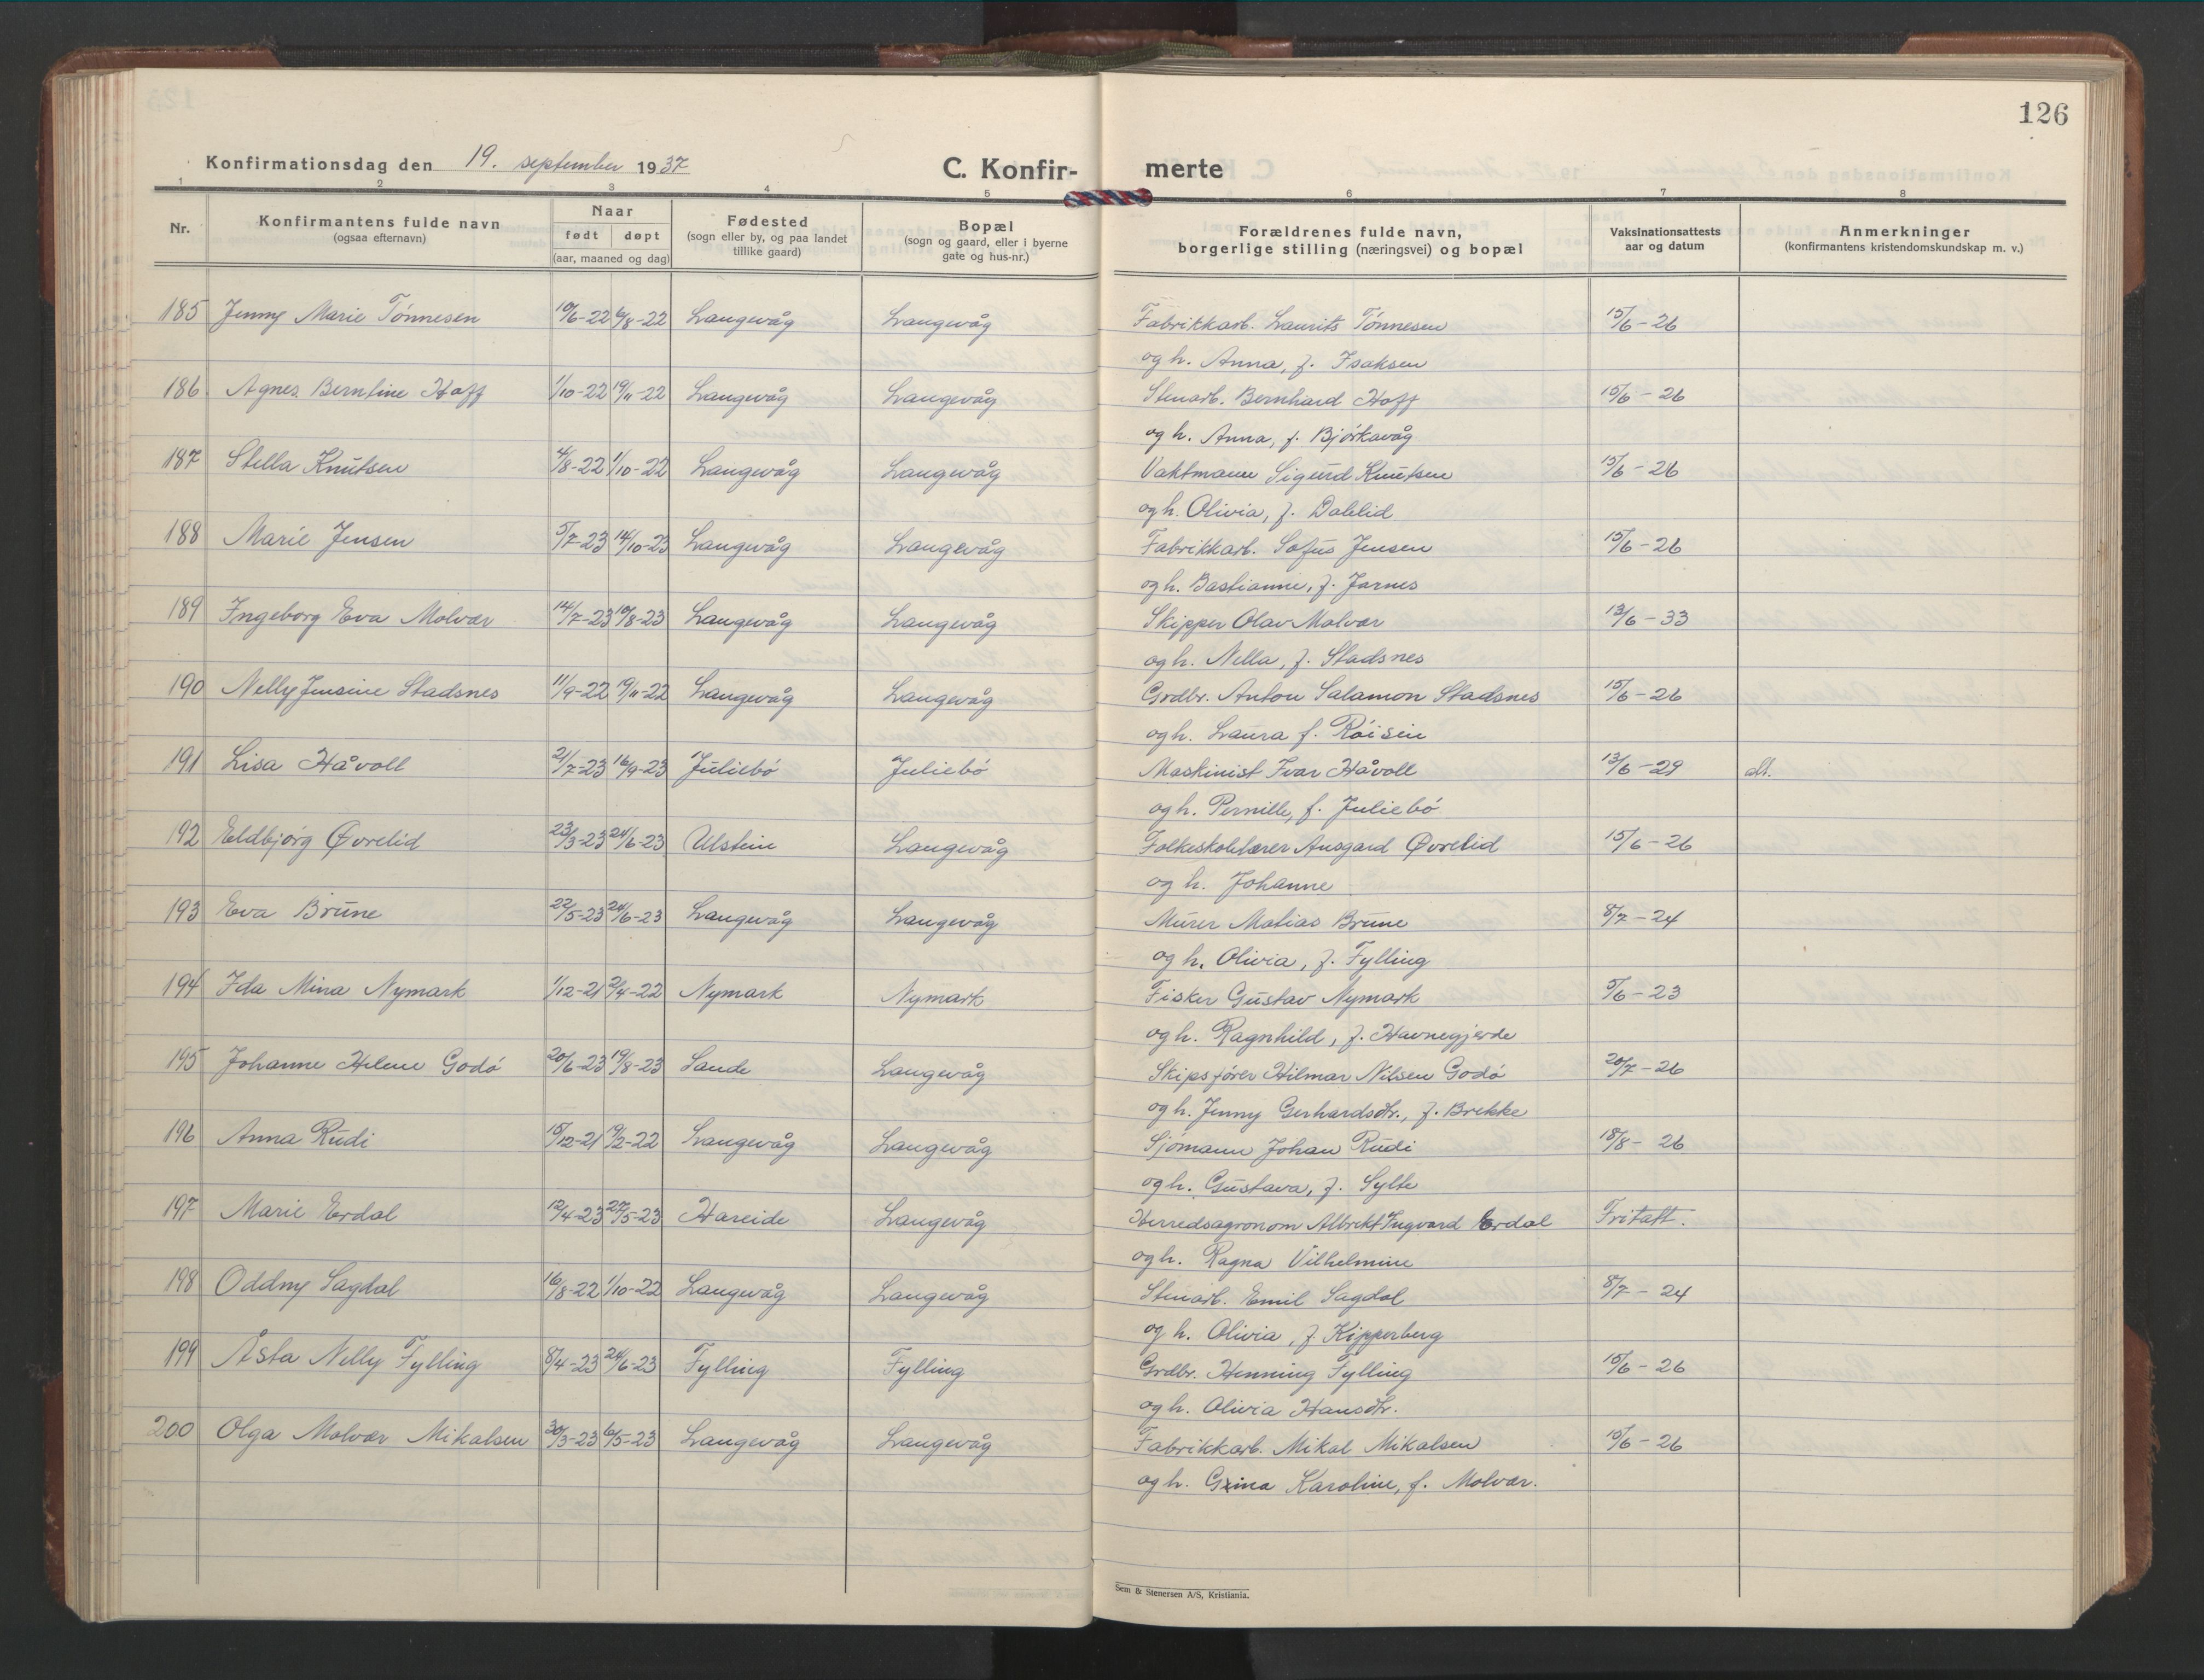 126
Konfirmationsdag den 19. september 1937
C. Konfir- merte
1 2 3 4 5 6 7 8
Nr.
Konfirmantens fulde navn
(ogsaa efternavn)
Naar
født døpt
(aar, maaned og dag)
Fødested
(sogn eller by, og paa landet
tillike gaard)
Bopæl
(sogn og gaard, eller i byerne
gate og hus-nr.)
Forældrenes fulde navn,
borgerlige stilling (næringsvei) og bopæl
Vaksinationsattests
aar og datum
Anmerkninger
(konfirmantens kristendomskundskap m. v.)
185 Jenny Marie Tønnesen 10/6-22 6/8-22 Langevåg Langevåg Fabrikkarb. Laurits Tønnesen 15/6-26
og h. Anna, f. Isaksen
186 Agnes Berntine Hoff 1/10-22 19/11-22 Langevåg Langevåg Stenarb. Bernhard Hoff 15/6-26
og h. Anna, f. Bjørkavåg
187 Stella Knutsen 4/8-22 1/10-22 Langevåg Langevåg Vaktmann Sigurd Knutsen 15/6-26
og h. Olivia, f. Dalelid
188 Marie Jensen 5/7-23 14/10-23 Langevåg Langevåg Fabrikkarb. Sofus Jensen 15/6-26
og h. Bastianne, f. Jarnes
189 Ingeborg Eva Molvær 14/7-23 19/8-23 Langevåg Langevåg Skipper Olav Molvær 13/6-33
og h. Nella, f. Stadsnes
190 Nelly Jensine Stadsnes 11/9-22 19/11-22 Langevåg Langevåg Grdbr. Anton Salamon Stadsnes 15/6-26
og h. Laura f. Røisen
191 Lisa Håvoll 21/7-23 16/9-23 Juliebø Juliebø Maskinist Ivar Håvoll 13/6-29 alt.
og h. Pernille, f. Juliebø
192 Eldbjørg Øvrelid 23/3-23 24/6-23 Ulstein Langevåg Folkeskolelærer Ansgard Øvrelid 15/6-26
og h. Johanne
193 Eva Brune 22/5-23 24/6-23 Langevåg Langevåg Murer Matias Brune 8/7-24
og h. Olivia, f. Fylling
194 Ida Mina Nymark 1/12-21 2/4-22 Nymark Nymark Fisker Gustav Nymark 5/6-23
og h. Ragnhild, f. Havnegjerde
195 Johanne Helene Godø 20/6-23 19/8-23 Sande Langevåg Skipsfører Hilmar Nilsen Godø 20/7-26
og h. Jenny Gerhardsdtr., f. Brekke
196 Anna Rudi 15/12-21 19/2-22 Langevåg Langevåg Sjømann Johan Rudi 18/8-26
og h. Gustava, f. Sylte
197 Marie Erdal 12/4-23 27/5-23 Hareide Langevåg Herredsagronom Albrekt Ingvard Erdal Fritatt.
og h. Ragna Vilhelmine
198 Oddny Sagdal 16/8-22 1/10-22 Langevåg Langevåg Stenarb. Emil Sagdal 8/7-24
og h. Olivia, f. Kipperberg
199 Åsta Nelly Fylling 8/4-23 24/6-23 Fylling Fylling Grdbr. Henning Fylling 15/6-26
og h. Olivia Hansdtr.
200 Olga Molvær Mikalsen 30/3-23 6/5-23 Langevåg Langevåg Fabrikkarb. Mikal Mikalsen 15/6-26
og h. Karoline, f. Molvær.
Sem & Stenersen A/S, Kristiania.